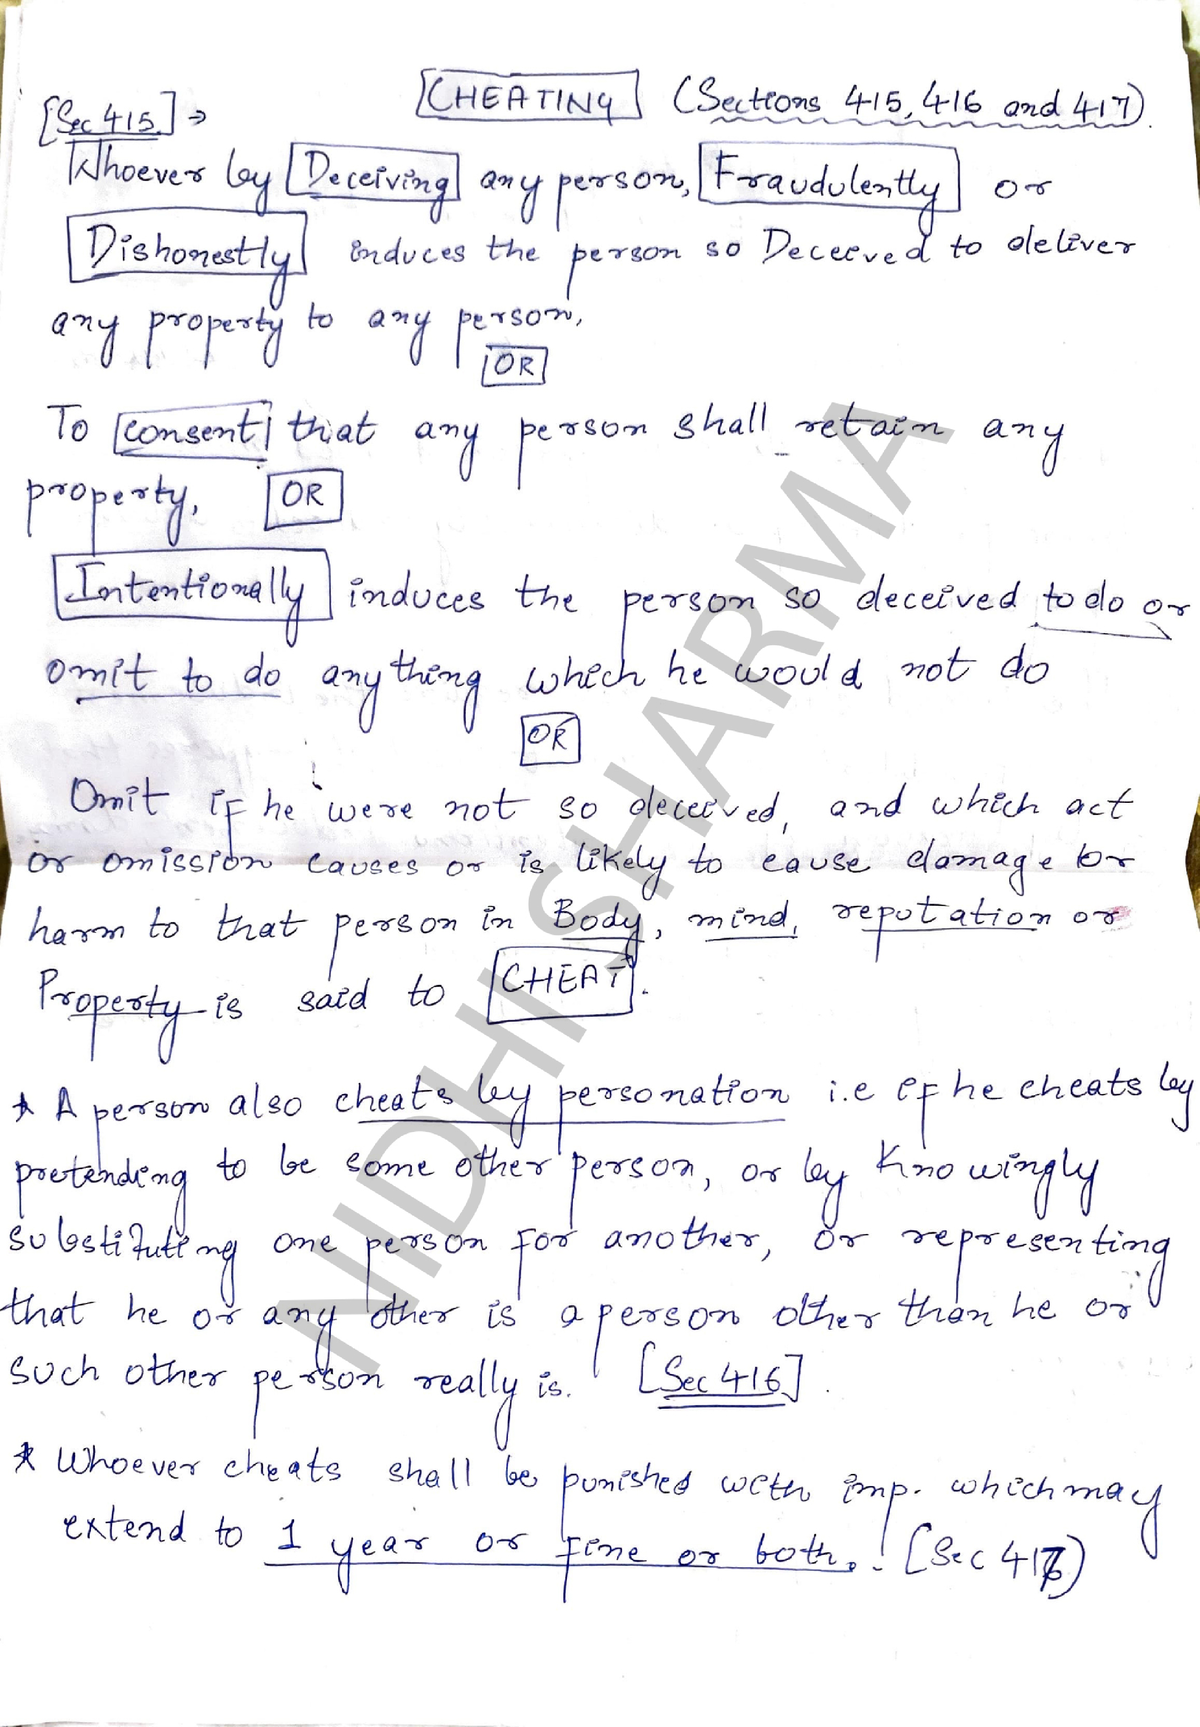 CHEATING (Sections 415, 416 and 417).
[Sec 415] →
Whoever by Deceiving any person, Fraudulently or
Dishonestly induces the person so Deceived to deliver
any property to any person,
OR
To consent that any person shall retain any
property, OR
Intentionally induces the person so deceived to do or
omit to do anything which he would not do
OR
Omit if he were not so deceived, and which act
or omission causes or is likely to cause damage or
harm to that person in Body, mind, reputation or
Property is said to CHEAT.
* A person also cheats by personation i.e if he cheats by
pretending to be some other person, or by knowingly
substituting one person for another, or representing
that he or any other is a person other than he or
such other person really is. [Sec 416].
* Whoever cheats shall be punished with imp. which may
extend to 1 year or fine or both. [Sec 417)
NIDHI SHARMA